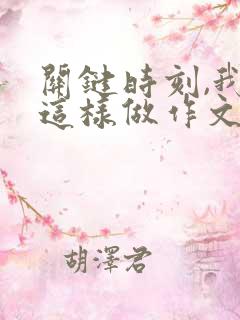 關鍵時刻,我
這樣做作文
胡澤君